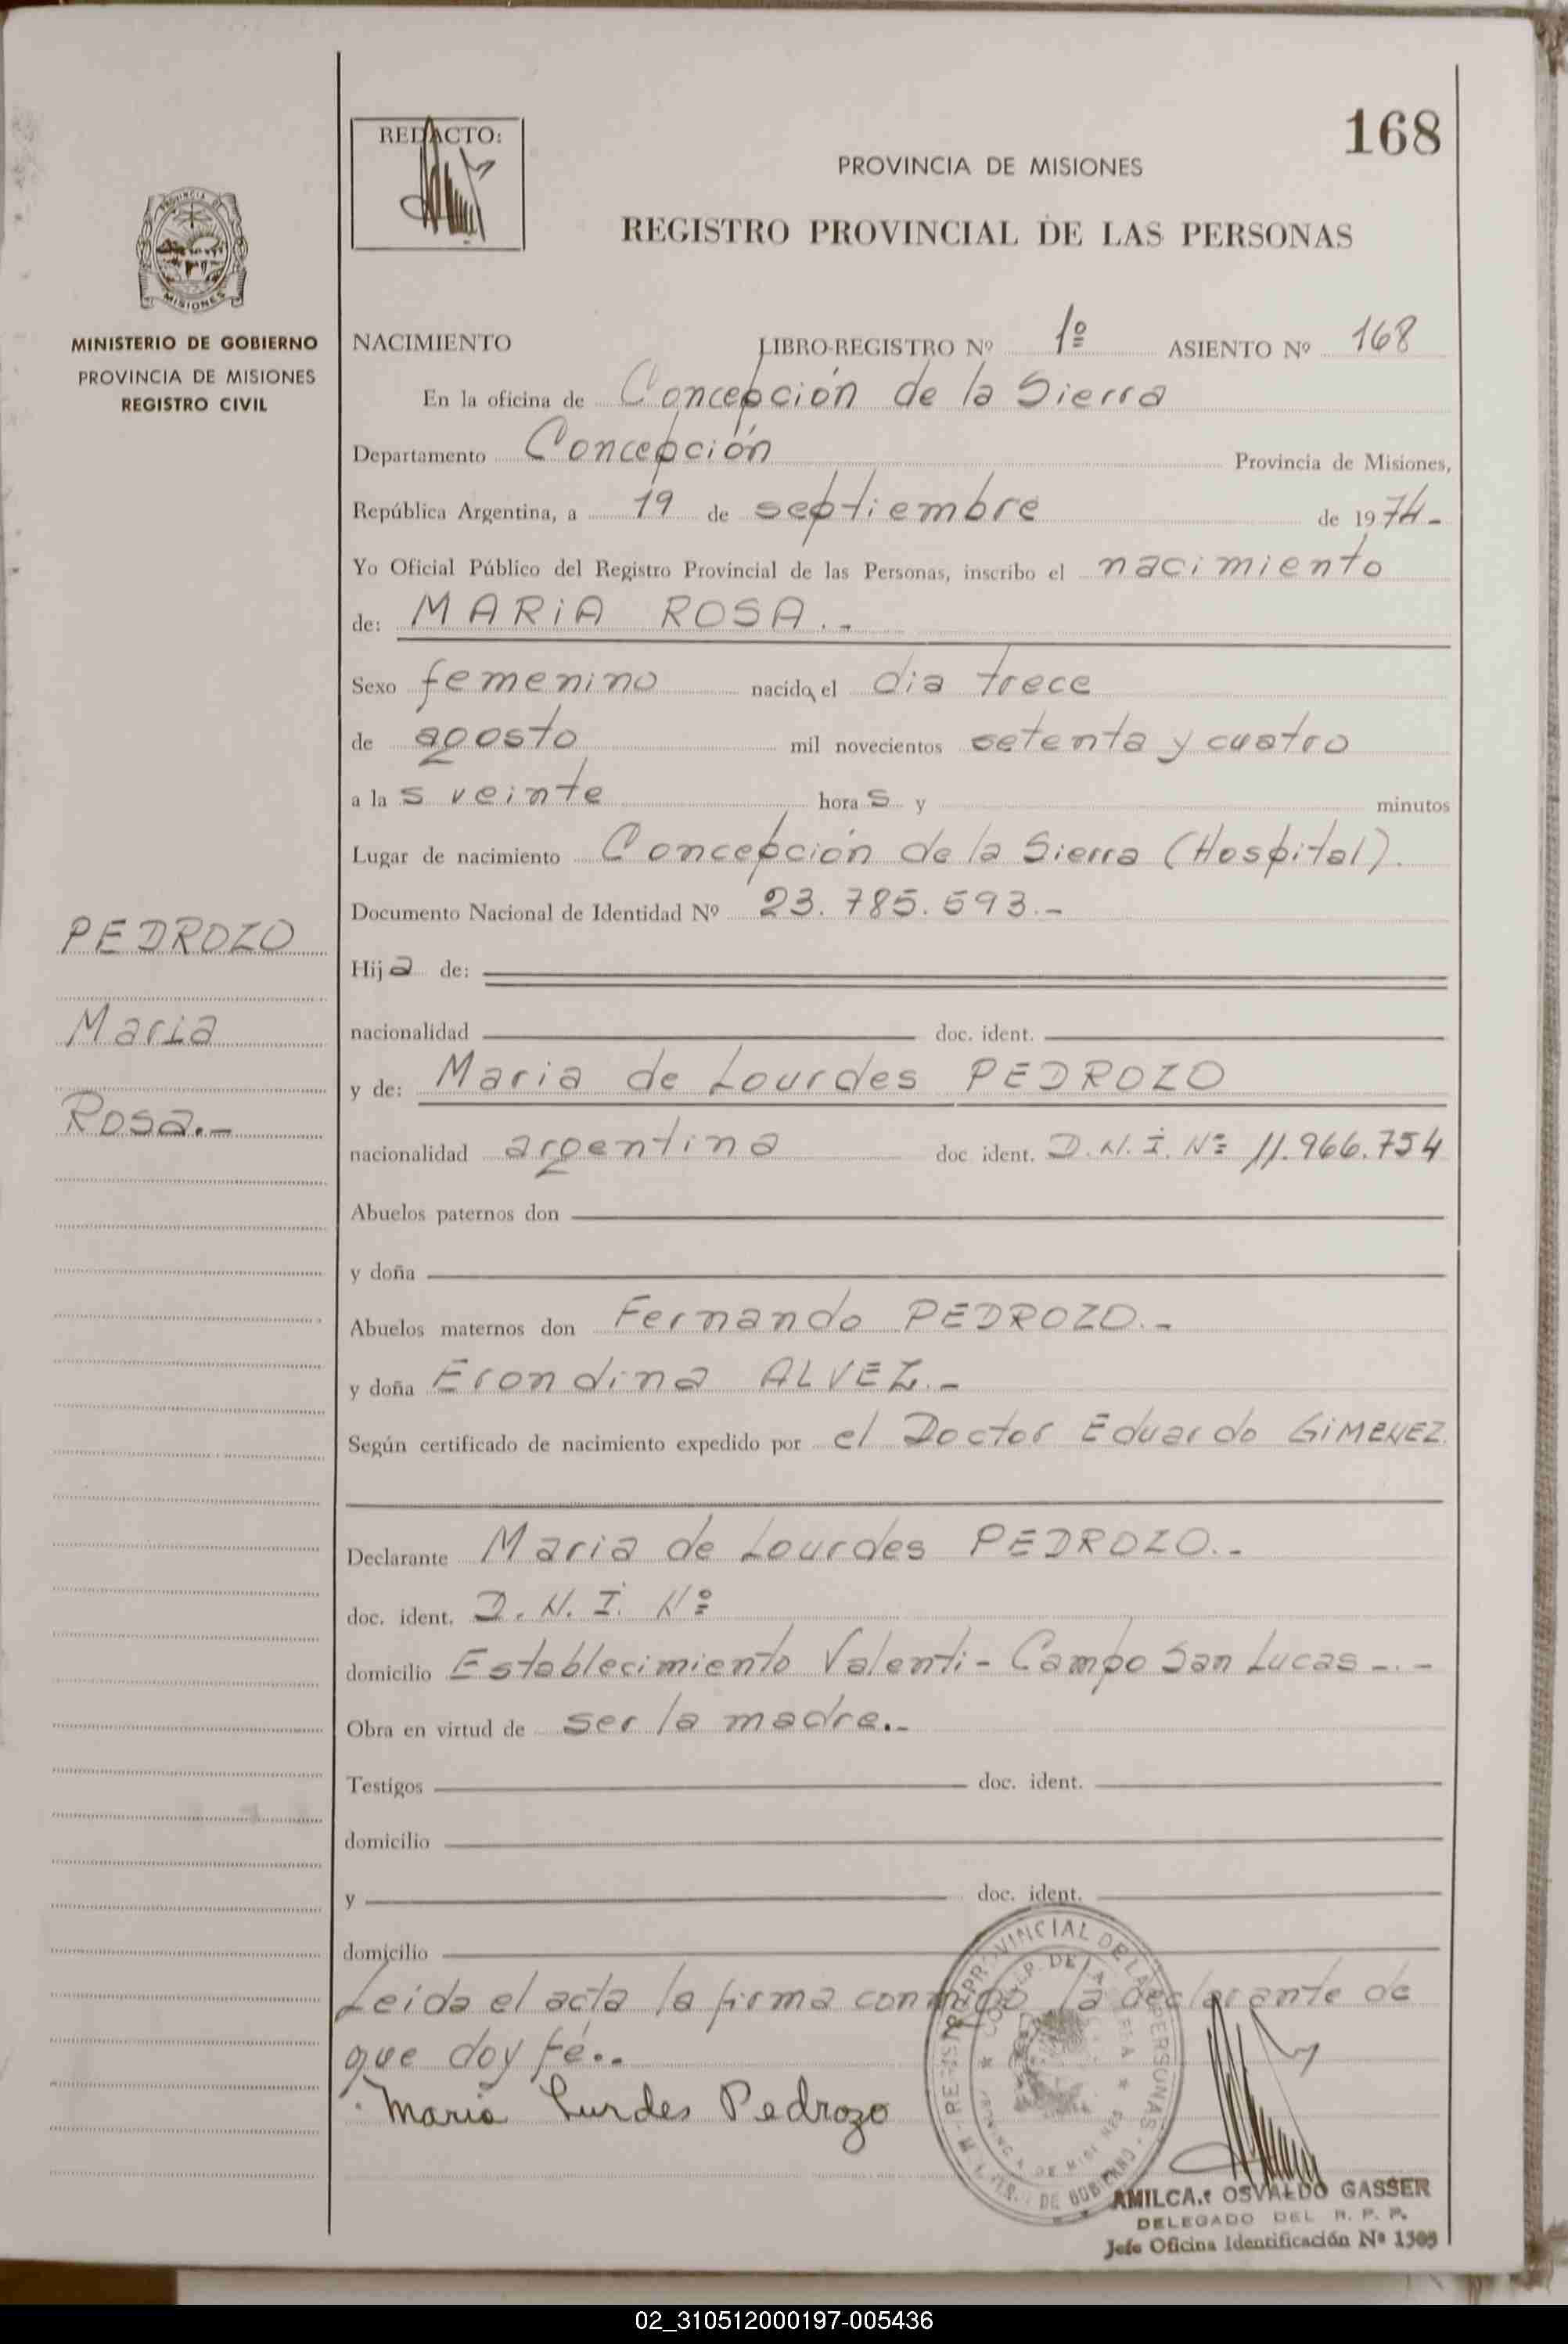 168
REDACTO:
PROVINCIA DE MISIONES
REGISTRO PROVINCIAL DE LAS PERSONAS
MISIONES
MINISTERIO DE GOBIERNO
PROVINCIA DE MISIONES
REGISTRO CIVIL
NACIMIENTO LIBRO-REGISTRO Nº 1º ASIENTO Nº 168
En la oficina de Concepción de la Sierra
Departamento Concepción Provincia de Misiones,
República Argentina, a 19 de septiembre de 1974-
Yo Oficial Público del Registro Provincial de las Personas, inscribo el nacimiento
de: MARiA ROSA.-
Sexo femenino nacida el dia trece
de agosto mil novecientos setenta y cuatro
a las veinte horas y minutos
Lugar de nacimiento Concepción de la Sierra (Hospital).
Documento Nacional de Identidad Nº 23.785.593.-
PEDROZO
Maria
Rosa.-
Hija de:
nacionalidad doc. ident.
y de: Maria de Lourdes PEDROZO
nacionalidad argentina doc. ident. D.N.I. Nº 11.966.754
Abuelos paternos don
y doña
Abuelos maternos don Fernando PEDROZO.-
y doña Erondina ALVEZ.-
Según certificado de nacimiento expedido por el Doctor Eduardo GiMENEZ.
Declarante Maria de Lourdes PEDROZO.-
doc. ident. D.N.I. Nº
domicilio Establecimiento Valenti- Campo San Lucas-.-
Obra en virtud de ser la madre.-
Testigos doc. ident.
domicilio
y doc. ident.
domicilio
Leida el acta la firma conmigo la declarante de
que doy fé..
Maria Lurdes Pedrozo
AMILCAR OSVALDO GASSER
DELEGADO DEL R. P. P.
Jefe Oficina Identificación Nº
02_310512000197-005436